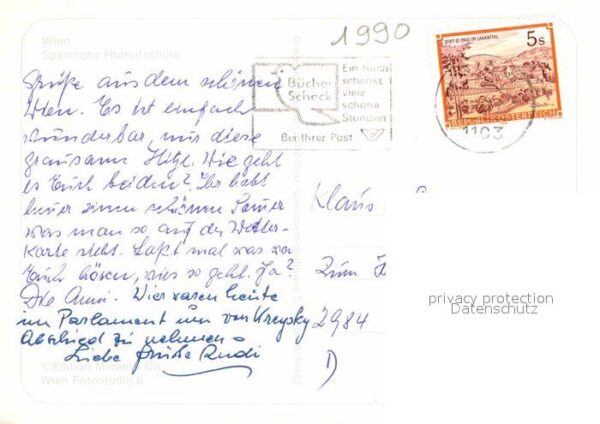 Wien
Spanische Hofreitschule
1990
Grüße aus dem schönen
Wien. Es ist einfach
wunderbar, nur diese
grausame Hitze. Wie geht
es Euch beiden? Ihr habt
heuer einen schönen Sommer
was man so auf der Wetter-
karte sieht. Laßt mal was von
Euch hören, wies so geht. Ja?
Die Anni. Wir waren heute
im Parlament um von Kreysky
Abschied zu nehmen.
Liebe Grüße Rudi
© Edition Michel & Co.
Wien Fotostudio 6
Ein Buch
schenkt
viele
schöne
Stunden
Bücher
Scheck
Bei Ihrer Post
STIFT ST. PAUL IM LAVANTTAL
5s
REPUBLIK ÖSTERREICH
1103
Klaus
Zum
2984
D
privacy protection
Datenschutz